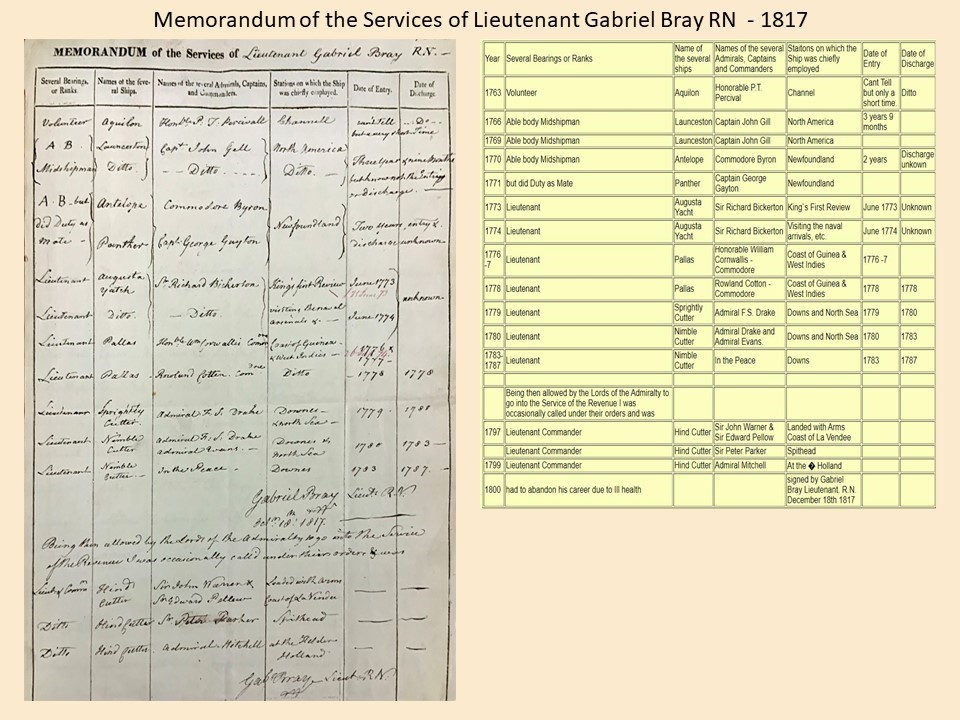 Memorandum of the Services of Lieutenant Gabriel Bray RN - 1817
MEMORANDUM of the Services of Lieutenant Gabriel Bray R.N.
Several Bearings, or Ranks. Names of the several Ships. Names of the several Admirals, Captains, and Commanders. Stations on which the Ship was chiefly employed. Date of Entry. Date of Discharge.
Volunteer Aquilon Honble P. T. Percivall Channell can't tell Do
but a very short time
A B Launceston Capt John Gell North America
Midshipman Ditto Ditto Ditto Three Years & nine Months
but know not the Entry
or discharge
A. B. but Antelope Commodore Byron
did Duty as Newfoundland Two Years, entry &
Mate Panther Capt George Gayton discharge unknown
Lieutenant Augusta Yatch Sr Richard Bickerton King's first Review June 1773
Lieutenant Ditto Ditto visiting Naval arsenals & June 1774 unknown
Lieutenant Pallas Honble Wm Cornwallis Coast of Guinea & West Indies
Lieutenant Pallas Rowland Cotten Ditto 1778 1778
Lieutenant Sprightly Cutter Admiral F. S. Drake Downes & North Sea 1779 1780
Lieutenant Nimble Cutter Admiral F. S. Drake Admiral Evans Downes & North Sea 1780 1783
Lieutenant Nimble Cutter In the Peace Downs 1783 1787
Gabriel Bray Lieut R.N.
18th 1817
Being then allowed by the Lords of the Admiralty to go into the Service
of the Revenue I was occasionally called under their orders & was
Hind Cutter Sir John Warren & Sir Edward Pellew Landed with Arms Coast of La Vendee
Ditto Hind Cutter Sr Peter Parker Spithead
Ditto Hind Cutter Admiral Mitchell at the Helder Holland
Gabl Bray Lieut R.N.
Year Several Bearings or Ranks Name of the several ships Names of the several Admirals, Captains and Commanders Staitons on which the Ship was chiefly employed Date of Entry Date of Discharge
1763 Volunteer Aquilon Honorable P.T. Percival Channel Cant Tell but only a short time. Ditto
1766 Able body Midshipman Launceston Captain John Gill North America 3 years 9 months
1769 Able body Midshipman Launceston Captain John Gill North America
1770 Able body Midshipman Antelope Commodore Byron Newfoundland 2 years Discharge unkown
1771 but did Duty as Mate Panther Captain George Gayton Newfoundland
1773 Lieutenant Augusta Yacht Sir Richard Bickerton King's First Review June 1773 Unknown
1774 Lieutenant Augusta Yacht Sir Richard Bickerton Visiting the naval arrivals, etc. June 1774 Unknown
1776 -7 Lieutenant Pallas Honorable William Cornwallis - Commodore Coast of Guinea & West Indies 1776 -7
1778 Lieutenant Pallas Rowland Cotton - Commodore Coast of Guinea & West Indies 1778 1778
1779 Lieutenant Sprightly Cutter Admiral F.S. Drake Downs and North Sea 1779 1780
1780 Lieutenant Nimble Cutter Admiral Drake and Admiral Evans. Downs and North Sea 1780 1783
1783-1787 Lieutenant Nimble Cutter In the Peace Downs 1783 1787
Being then allowed by the Lords of the Admiralty to go into the Service of the Revenue I was occasionally called under their orders and was
1797 Lieutenant Commander Hind Cutter Sir John Warner & Sir Edward Pellow Landed with Arms Coast of La Vendee
Lieutenant Commander Hind Cutter Sir Peter Parker Spithead
1799 Lieutenant Commander Hind Cutter Admiral Mitchell At the � Holland
1800 had to abandon his career due to Ill health signed by Gabriel Bray Lieutenant. R.N. December 18th 1817